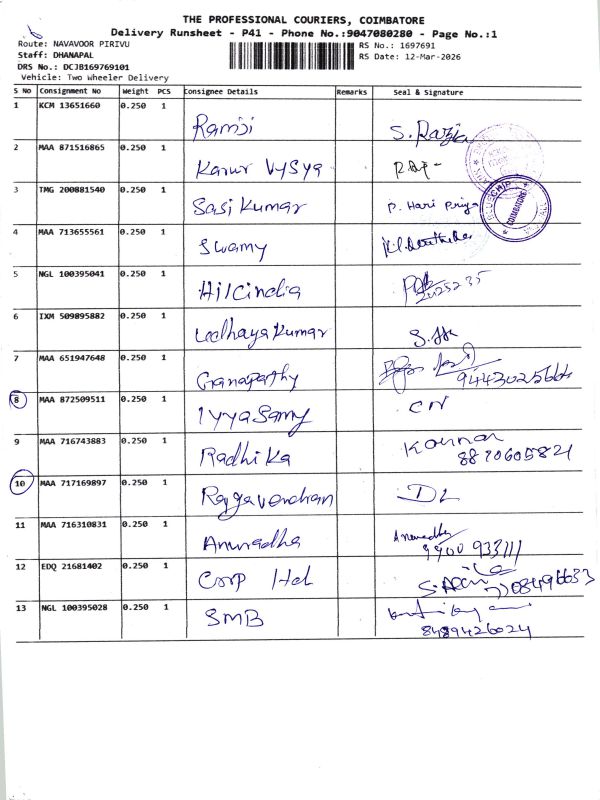 THE PROFESSIONAL COURIERS, COIMBATORE
Delivery Runsheet - P41 - Phone No.:9047080280 - Page No.:1
Route: NAVAVOOR PIRIVU
Staff: DHANAPAL
DRS No.: DCJB169769101
Vehicle: Two Wheeler Delivery
RS No.: 1697691
RS Date: 12-Mar-2026
S No Consignment No Weight PCS Consignee Details Remarks Seal & Signature
1 KCM 13651660 0.250 1 Ramji S. Razia
2 MAA 871516865 0.250 1 Karur Vysya
3 TMG 200881540 0.250 1 Sasi Kumar P. Hari Priya
COIMBATORE
4 MAA 713655561 0.250 1 Swamy
5 NGL 100395041 0.250 1 Hilcindia
6 IXM 509895882 0.250 1 Udhaya Kumar
7 MAA 651947648 0.250 1 Ganapathy 9443025666
8 MAA 872509511 0.250 1 Iyyasamy CN
9 MAA 716743883 0.250 1 Radhika Kannan
8870605821
10 MAA 717169897 0.250 1 Ragavendran DL
11 MAA 716310831 0.250 1 Anuradha Anuradha
9900 933111
12 EDQ 21681402 0.250 1 Corp Hd
13 NGL 100395028 0.250 1 SMB
8489426024